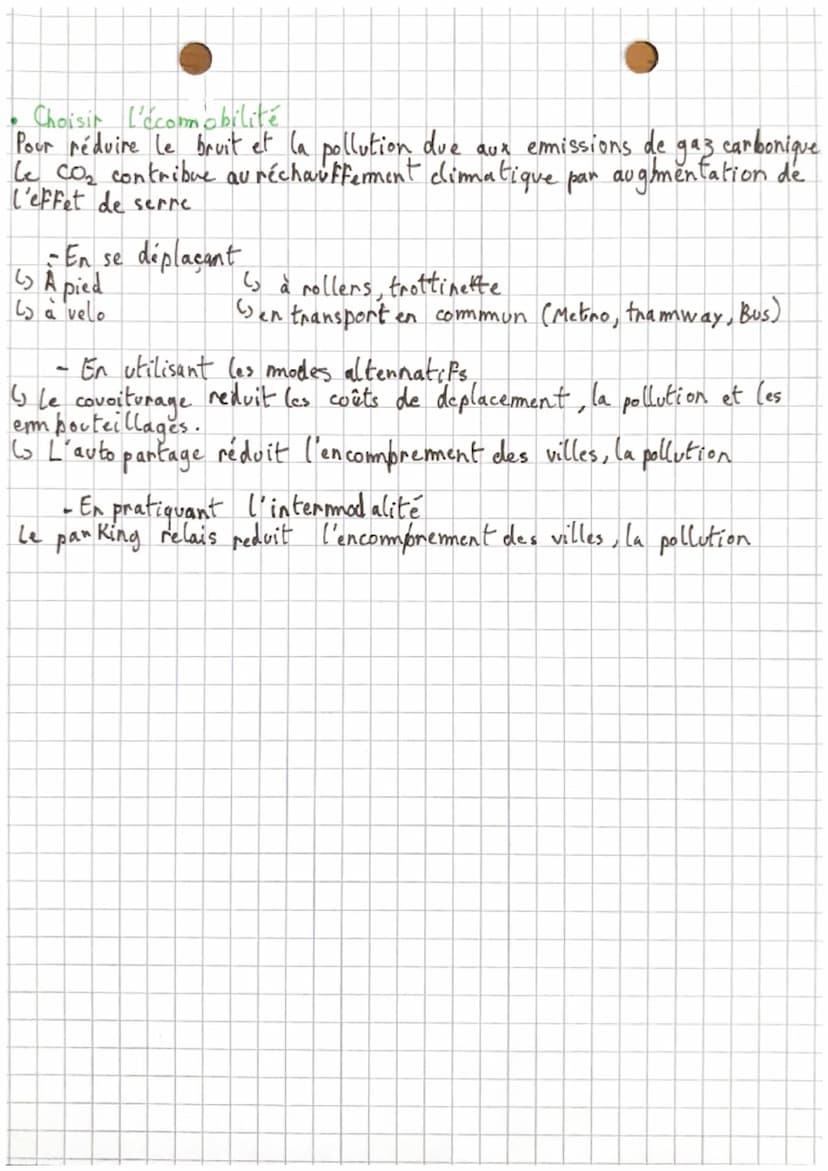 • Choisir l'écomobilité
Pour réduire le bruit et la pollution due aux emissions de gaz carbonique
Le CO₂ contribue au réchauffement climatique par augmentation de
l'effet de serre
- En se déplaçant
↳ À pied ↳ à rollers, trottinette
↳ à velo ↳ en transport en commun (Metro, tramway, Bus)
- En utilisant les modes alternatifs
↳ Le covoiturage reduit les coûts de deplacement, la pollution et les
embouteillages.
↳ L'auto partage réduit l'encombrement des villes, la pollution
- En pratiquant l'intermodalité
Le parking relais reduit l'encombrement des villes, la pollution